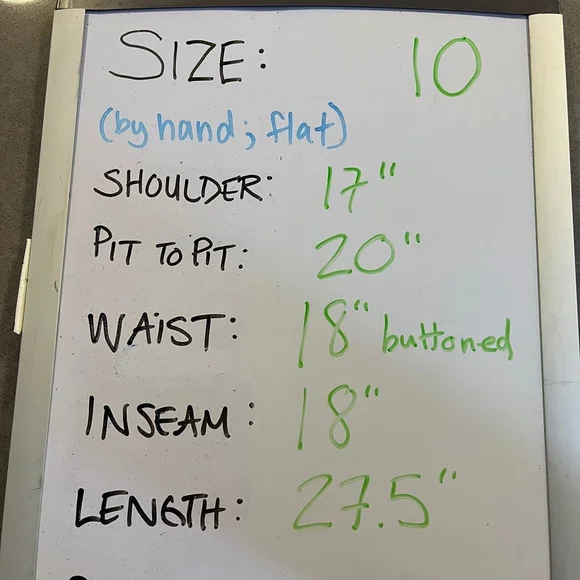 SIZE: 10
(by hand; flat)
SHOULDER: 17"
PIT TO PIT: 20"
WAIST: 18" buttoned
INSEAM: 18"
LENGTH: 27.5"